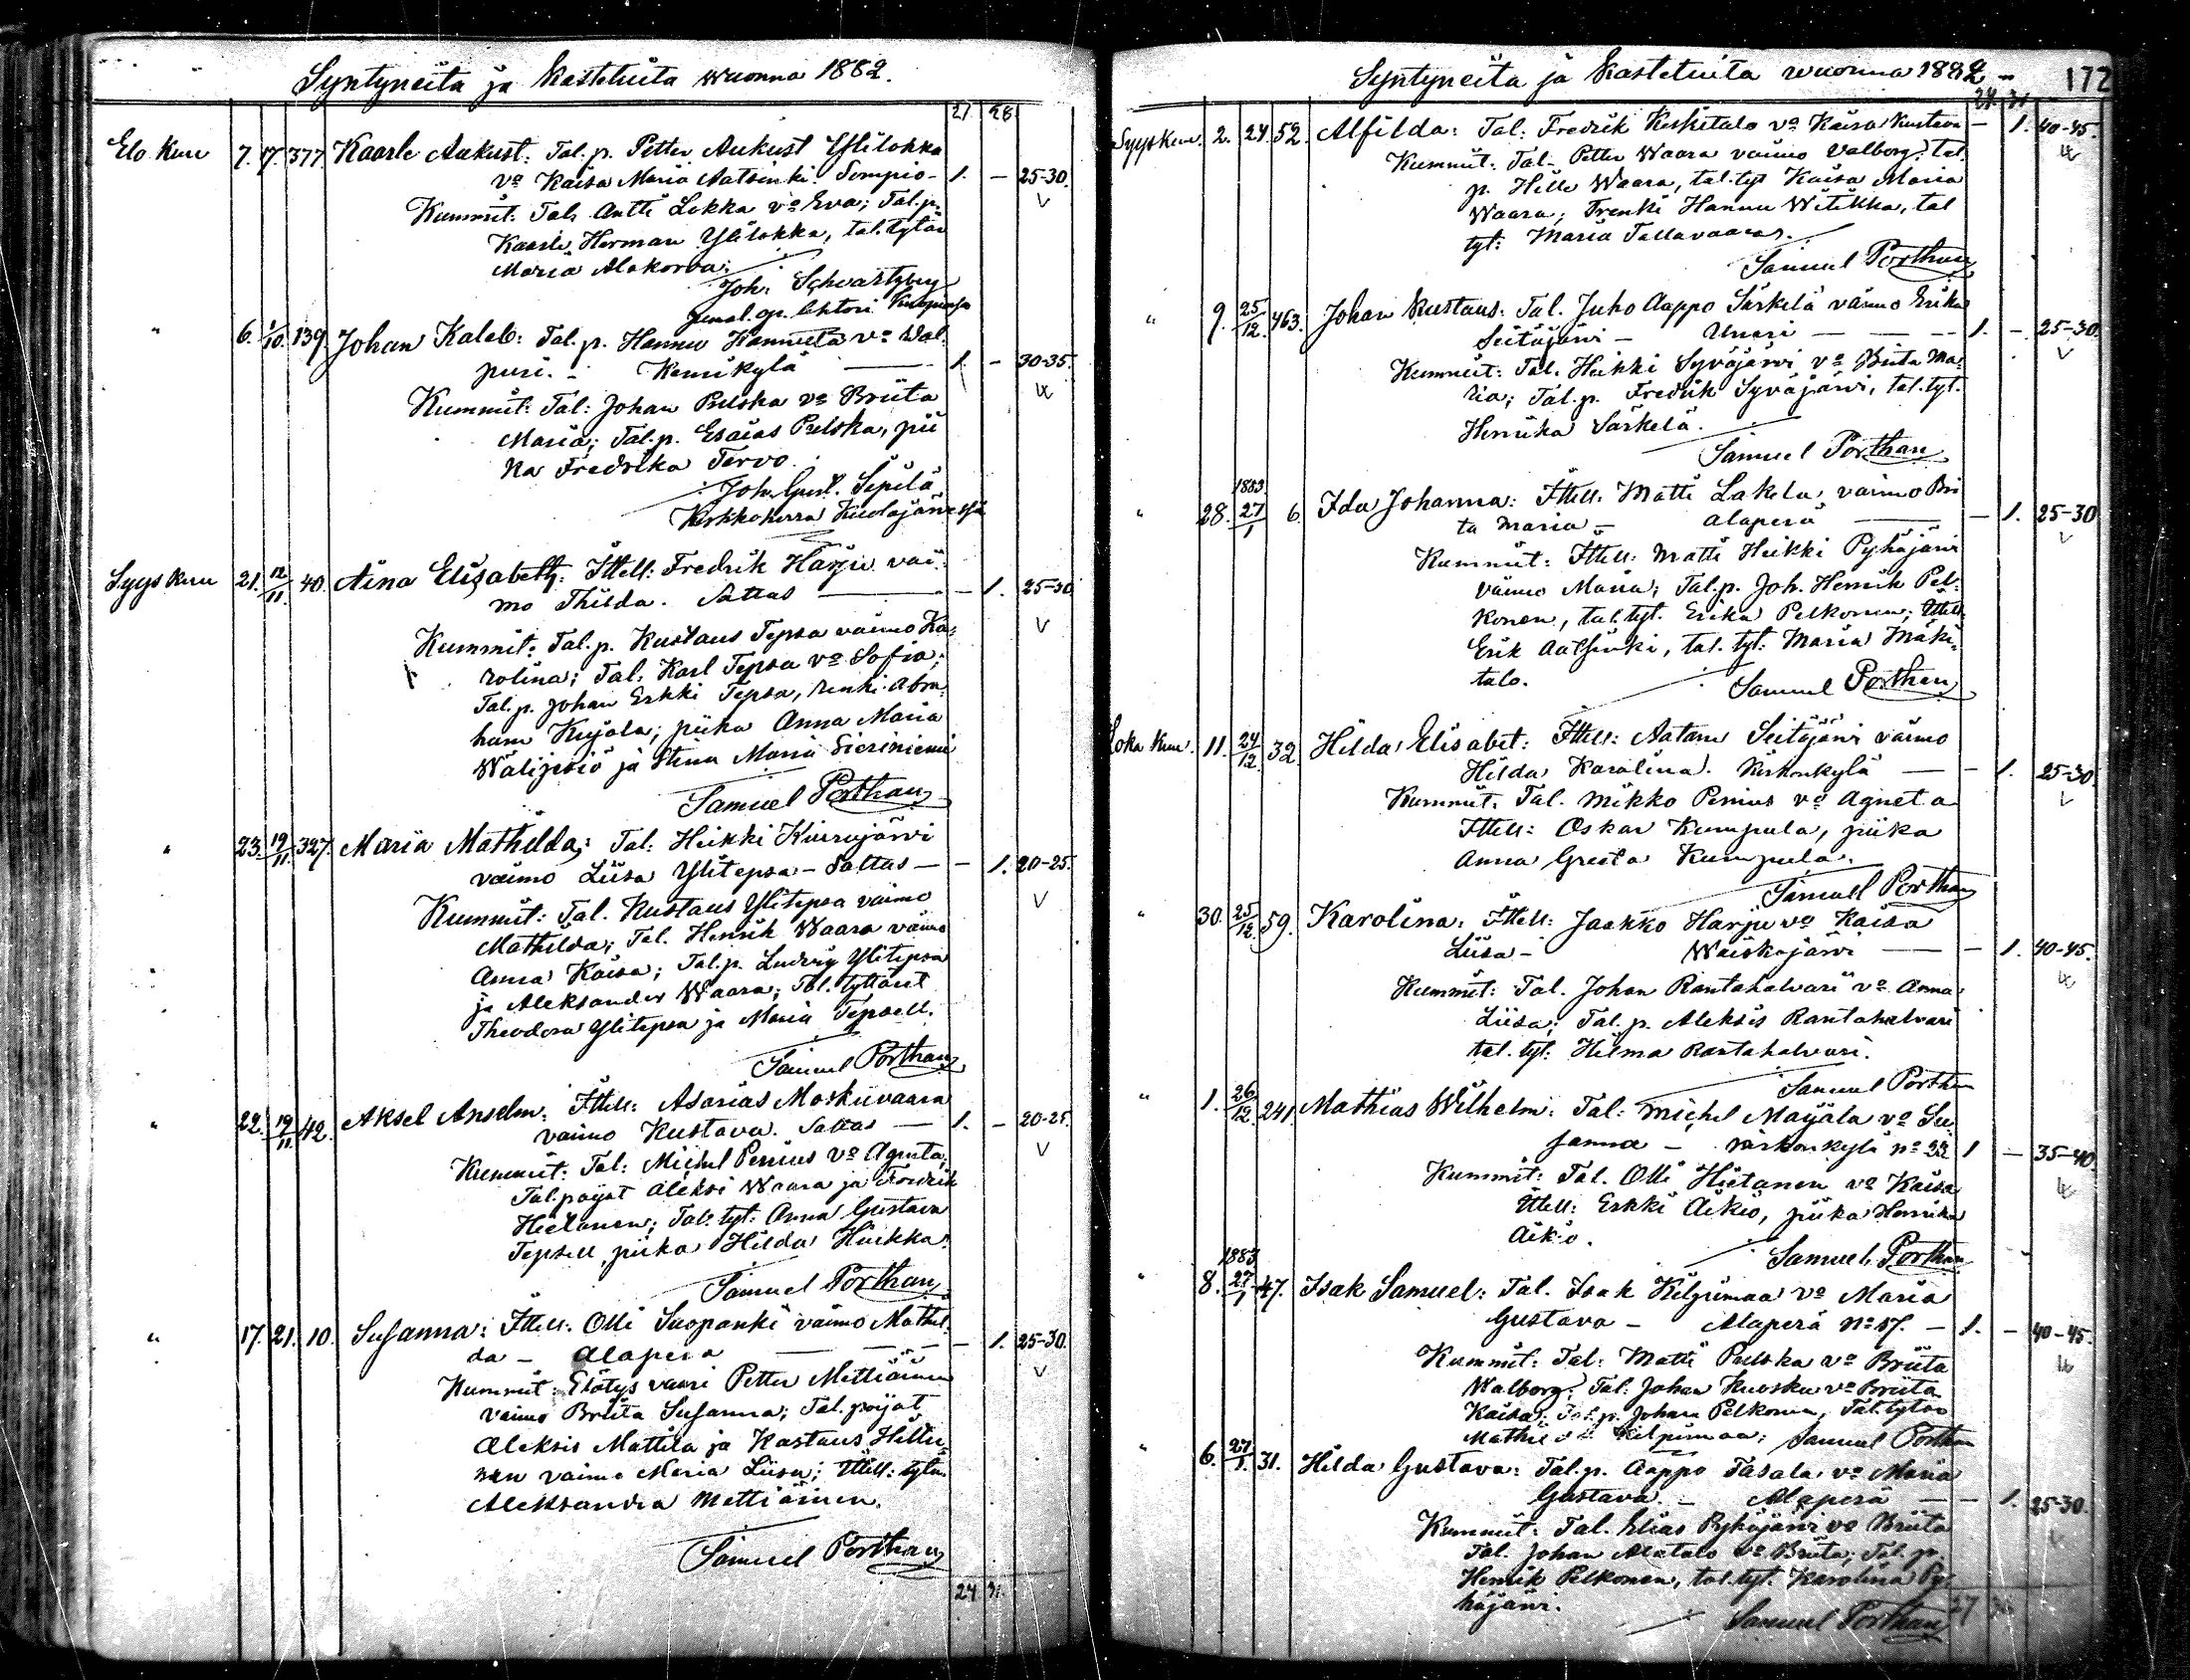 Syntyneitä ja Kastetuita wuonna 1882.
27 28
Elo Kuu 7. 17. 377 Kaarle Aukust: Tal. p. Petter Aukust Ylilokka
vo Kaisa Maria Aatsinki. Sompio - 1. - 25-30.
Kummit: Tal: Antti Lokka vo Eva; Tal. p.
Kaarle Herman Ylilokka, tal. tytär
Maria Alakorva;
Joh: Schwartzberg
" 6. 1/10. 139. Johan Kaleb: Tal. p. Hannu Hannula vo Wal
puri. - Kemikylä 1. - 30-35.
Kummit: Tal: Johan Pulska vo Briita
Maria; Tal. p. Esaias Pulska, pii
ka Fredrika Tervo.
Joh. Gust. Sipilä
Kirkkoherra Kuolajärvessä
Syys Kuu 21. 12/11. 40. Aina Elisabeth: Ittell: Fredrik Harju vai
mo Thilda. Sattas - 1. 25-30
Kummit: Tal. p. Kustaus Tepsa vaimo Ka
rolina; Tal. Karl Tepsa vo Sofia;
Tal. p. Johan Erkki Tepsa, renki Abra
ham Kujala; piika Anna Maria
Walipesiö ja Stina Maria Sieriniemi
Samuel Porthan
" 23. 19/11. 327. Maria Mathilda; Tal: Heikki Kiurujärvi
vaimo Liisa Ylitepsa - Sattas - - 1. 20-25.
Kummit: Tal. Kustaus Ylitepsa vaimo
Mathilda; Tal. Henrik Waara vaimo
Anna Kaisa; Tal. p. Ludvig Ylitepsa
ja Aleksander Waara; Tal. tyttäret
Theodora Ylitepsa ja Maria Tepsell.
Samuel Porthan
" 22. 19/11. 42. Aksel Anselm: Ittell: Asarias Moskuvaara
vaimo Kustava. Sattas - 1. - 20-25.
Kummit: Tal: Michel Pernius vo Agneta;
Tal. pojat Aleksi Waara ja Fredrik
Hietanen; Tal. tyt: Anna Gustava
Tepsell, piika Hilda Huikka.
Samuel Porthan
" 17. 21. 10. Susanna: Ittell: Olli Suopanki vaimo Mathil
da - Alaperä - 1. 25-30.
Kummit: Elätys vaari Petter Mettiäinen
vaimo Briita Susanna; Tal. pojat
Aleksis Mattila ja Kustaus Hiltu
nen vaimo Maria Liisa; Ittell: tytär
Aleksandra Mettiäinen.
Samuel Porthan
24 31.
Syntyneitä ja Kastetuita wuonna 1882 - 172
24. 31
Syys Kuu. 2. 24 52. Alfilda: Tal: Fredrik Keskitalo vo Kaisa Kustava - 1. 40-45.
Kummit: Tal. Petter Waara vaimo Valborg; tal.
p. Hille Waara, tal. tyt Kaisa Maria
Waara; Renki Hannu Witikka, tal
tyt: Maria Tallavaara.
Samuel Porthan
" 9. 25/12. 463. Johan Kustaus: Tal. Juho Aappo Särkelä vaimo Erika
Seitäjärvi - Unari - 1. - 25-30.
Kummit: Tal. Heikki Syväjärvi vo Briita Ma
ria; Tal. p. Fredrik Syväjärvi, tal. tyt.
Henrika Särkelä.
Samuel Porthan
1883
" 28. 27/1 6. Ida Johanna: Ittell: Matti Lakela vaimo Bri
ta Maria - Alaperä - 1. 25-30
Kummit: Ittell: Matti Heikki Pyhäjärvi
vaimo Maria; Tal. p. Joh. Henrik Pel
konen, tal. tyt. Erika Pelkonen; Ittell
Erik Aatsinki, tal. tyt: Maria Mäki
talo.
Samuel Porthan
Loka Kuu. 11. 24/12. 32. Hilda Elisabet: Ittell: Aatam Seitäjärvi vaimo
Hilda Karolina. Kirkonkylä - 1. 25-30
Kummit: Tal. Mikko Pernius vo Agneta
Ittell: Oskar Kumpula, piika
Anna Greeta Kumpula.
Samuel Porthan
" 30. 25/12. 59. Karolina: Ittell: Jaakko Harju vo Kaisa
Liisa - Waiskojärvi - - 1. 40-45.
Kummit: Tal. Johan Rantahalvari vo Anna
Liisa; Tal. p. Aleksis Rantahalvari
tal. tyt: Hilma Rantahalvari.
Samuel Porthan
" 1. 26/12. 241. Mathias Wilhelm: Tal: Michel Maijala vo Su
sanna - Kirkonkylä No 22 1 - 35-40
Kummit: Tal. Olli Hietanen vo Kaisa
Ittell: Erkki Aikio, piika Henrika
Aikio.
Samuel Porthan
1883
" 8. 27/1 47. Isak Samuel: Tal. Isak Kilpimaa vo Maria
Gustava - Alaperä No 47. - 1. - 40-45.
Kummit: Tal: Matti Pulska vo Briita
Walborg; Tal: Johan Kuosku vo Briita
Kaisa; Tal. p. Johan Pelkonen, Tal. tytär
Kilpimaa; Samuel Porthan
" 6. 27/1. 31. Hilda Gustava: Tal. p. Aappo Tasala vo Maria
Gustava. - Alaperä - - 1. 25-30.
Kummit: Tal. Elias Pyhäjärvi vo Briita
Tal. Johan Alatalo vo Briita; Tal. p.
Henrik Pelkonen, tal. tyt. Karolina Py
häjärvi.
Samuel Porthan